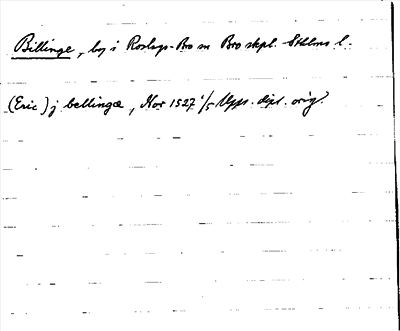 Billinge, by i Roslags-Bro sn Bro skpl. Sthlms l.
(Eric) j bellinge, Nor 1527 1/5 Upps. dipl. orig.